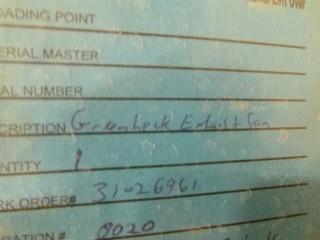 OADING POINT
ERIAL MASTER
AL NUMBER
CRIPTION Greenheck Exhaust fan
NTITY 1
RK ORDER# 31026961
RATION # 8020